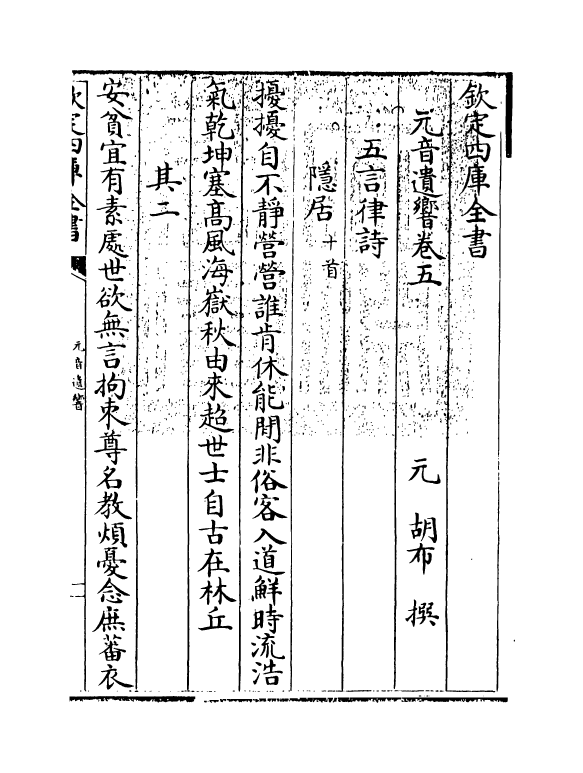 欽定四庫全書
元音遺響卷五
元 胡布 撰
五言律詩
隱居十首
擾擾自不靜營營誰肯休能閒非俗客入道鮮時流浩
氣乾坤塞高風海嶽秋由來超世士自古在林丘
其二
安貧宜有素處世欲無言拘束尊名教煩憂念庶蕃衣
欽定四庫全書
元音遺響
一